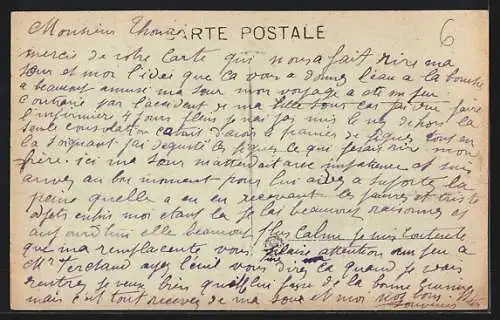 Monsieur Thomas
CARTE POSTALE
6
merci de votre carte qui nous a fait rire ma
sœur et moi l'idée que ça vous a donner l'eau a la bouche
a beaucoup amusé ma sœur mon voyage a été un peu
contrarié par l'accident de ma belle sœur car j'ai du faire
l'infirmier 4 jours plein je n'ai pas mis le nez dehors la
seule consolation d'avoir 2 panier de figues tout en
la soignant j'ai dégusté les figues ce qui fesait rire mon
frère. ici ma sœur m'attendait avec impatience et suis
arrivé au bon moment pour lui aider a supporter la
peine quelle a eu en recevant les pauvres et triste
objets enfin moi étant la je l'ai beaucoup raisonnée et
aujourd'hui elle beaucoup plus calme je suis contente
que ma remplacente vous plaise attention un peu a
Mr Ferdinand ayez l'œil vous direz ça quand je vais
rentrer je veux bien qu'il lui fasse de la bonne
mais c'est tout recevez de ma sœur et moi nos
souvenirs